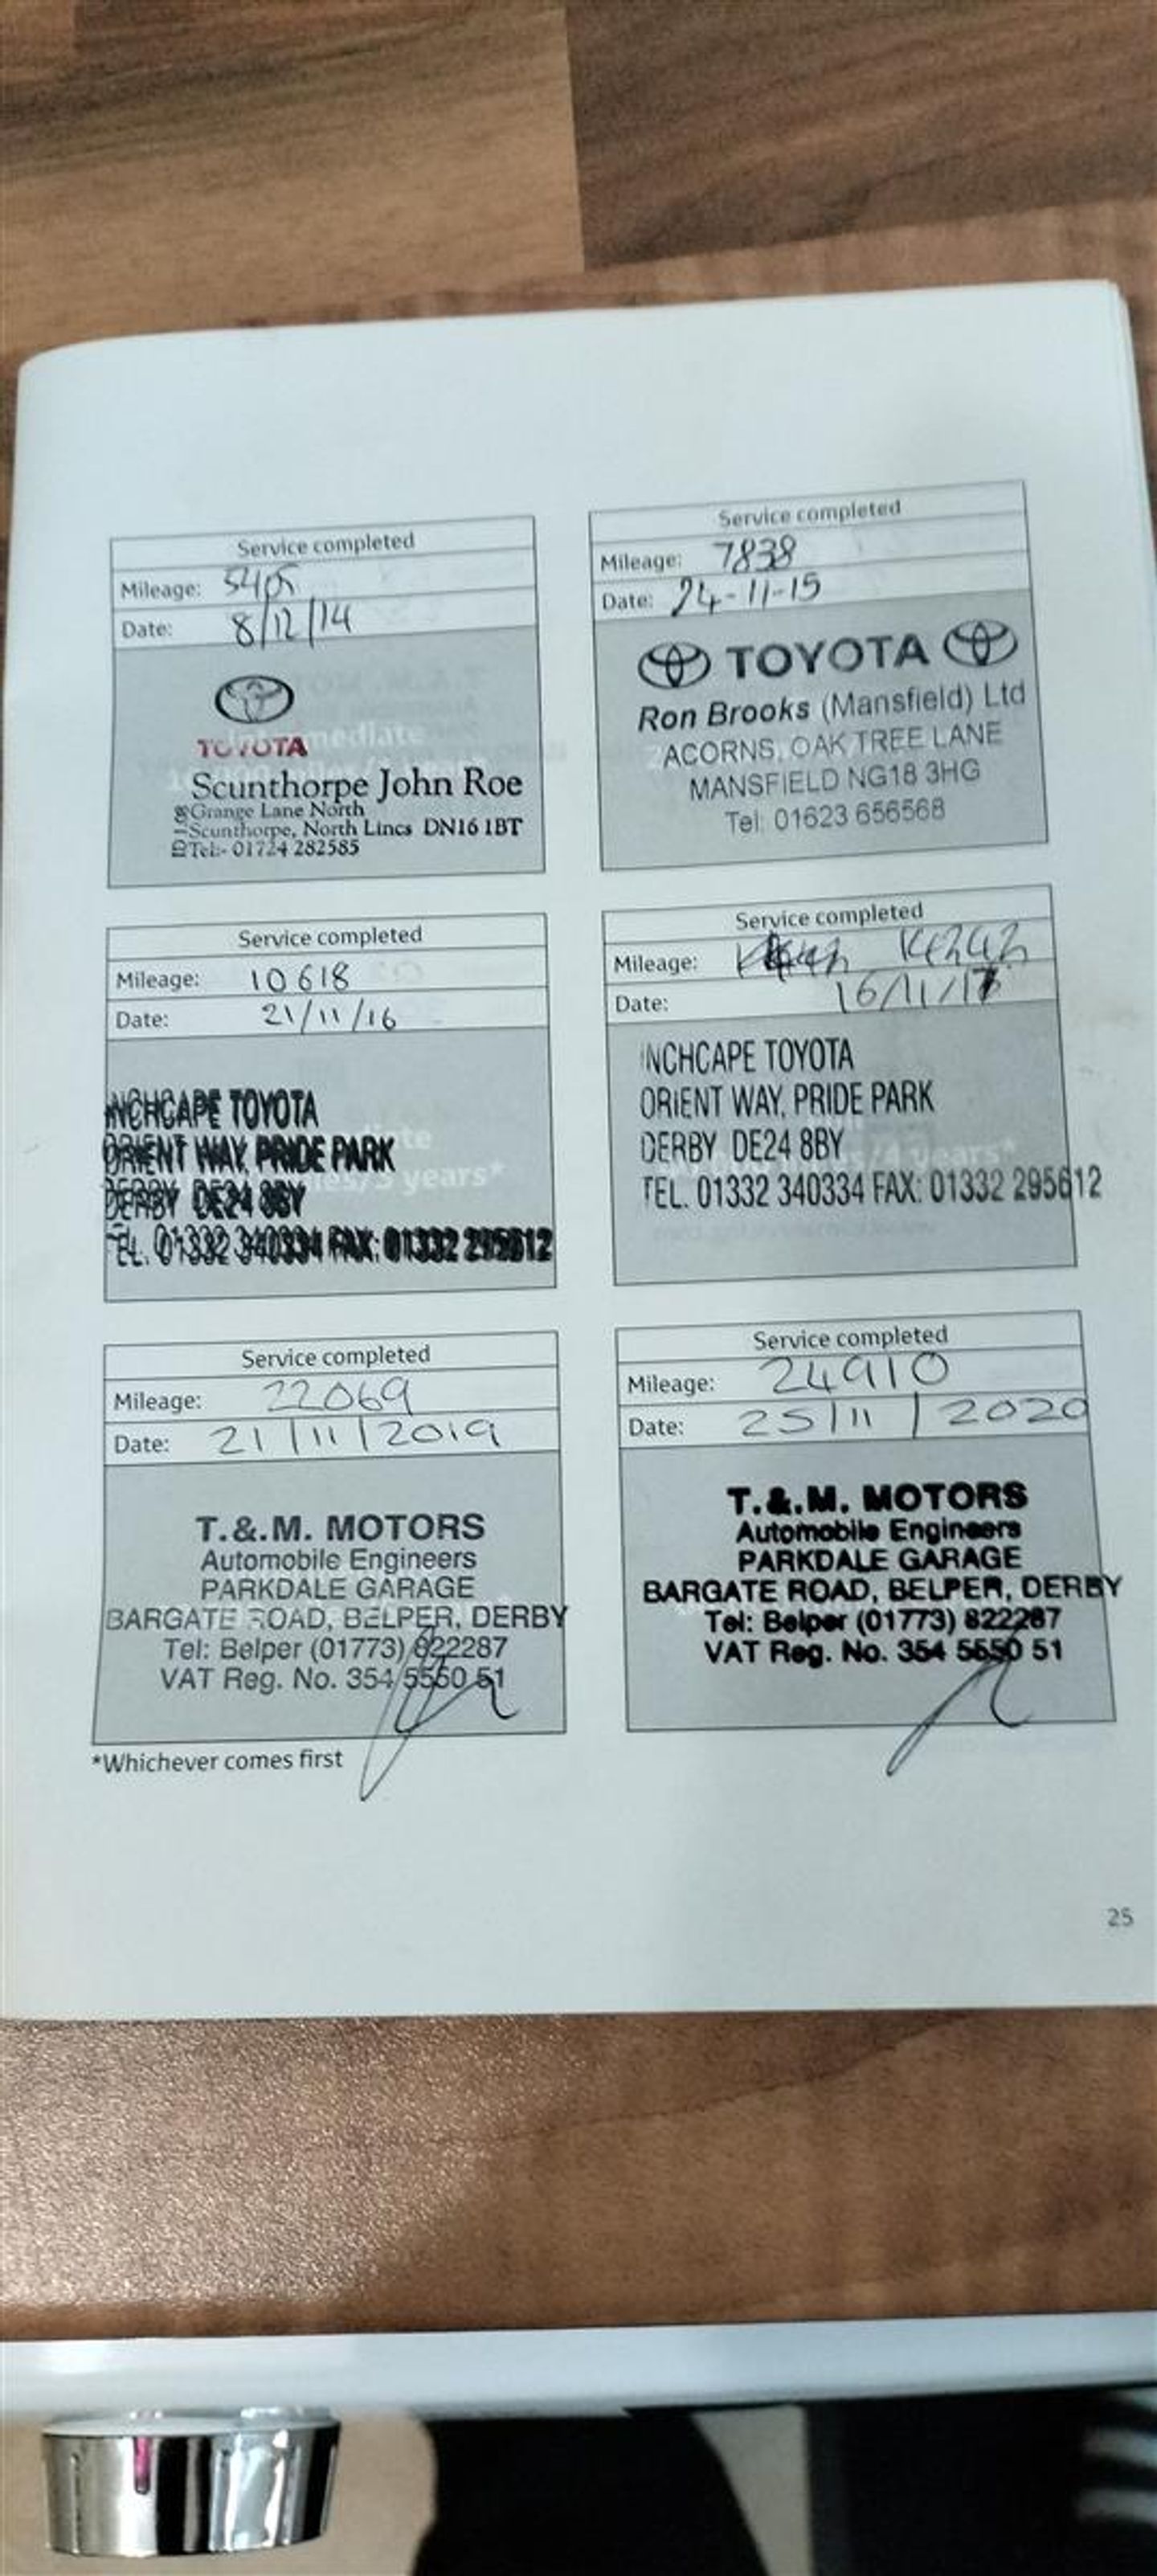 Service completed
Mileage: 5405
Date: 8/12/14
TOYOTA
Scunthorpe John Roe
Grange Lane North
Scunthorpe, North Lincs DN16 1BT
Tel:- 01724 282585
Service completed
Mileage: 7838
Date: 24-11-15
TOYOTA
Ron Brooks (Mansfield) Ltd
ACORNS, OAK TREE LANE
MANSFIELD NG18 3HG
Tel: 01623 656568
Service completed
Mileage: 10618
Date: 21/11/16
INCHCAPE TOYOTA
ORIENT WAY, PRIDE PARK
DERBY DE24 8BY
TEL. 01332 340334 FAX: 01332 295612
Service completed
Mileage:
Date: 16/11/17
INCHCAPE TOYOTA
ORIENT WAY, PRIDE PARK
DERBY DE24 8BY
TEL. 01332 340334 FAX: 01332 295612
Service completed
Mileage: 22069
Date: 21/11/2019
T.&.M. MOTORS
Automobile Engineers
PARKDALE GARAGE
BARGATE ROAD, BELPER, DERBY
Tel: Belper (01773) 822287
VAT Reg. No. 354 5550 51
Service completed
Mileage: 24910
Date: 25/11/2020
T.&.M. MOTORS
Automobile Engineers
PARKDALE GARAGE
BARGATE ROAD, BELPER, DERBY
Tel: Belper (01773) 822287
VAT Reg. No. 354 5550 51
*Whichever comes first
25